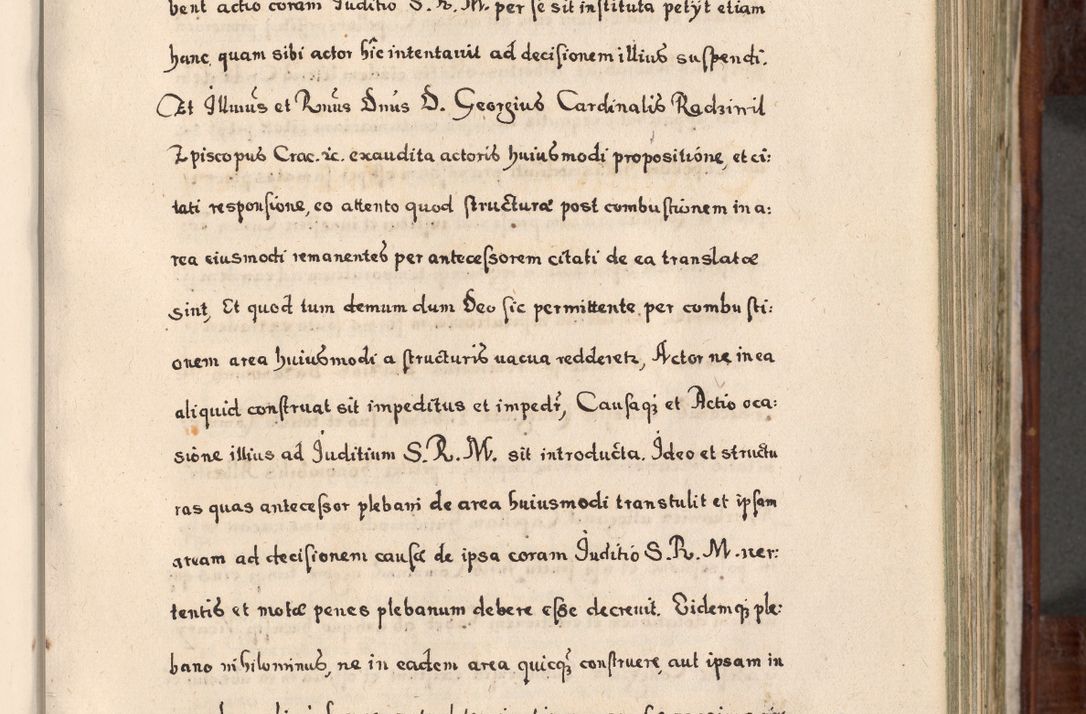 bent actio coram Juditio S. R. M. per se sit instituta petÿt etiam
hanc quam sibi actor hîc intentauit ad decisionem illius suspendi.
Et Illmus et Rmus Dnus D. Georgius Cardinalis Radziwil
Episcopus Crac. ꝛc. exaudita actoris huiusmodi propositióne, et ci:
tati responsione, eo attento quod structuræ post combustionem in a:
rea eiusmodi remanentes per antecessorem citati de ea translatæ
sint, Et quod tum demum dum Deo sic permittente per combusti:
onem area huiusmodi a structuris uacua redderetr, Actor ne in ea
aliquid construat sit impeditus et impedr, Causaqz et Actio oca:
sióne illius ad Juditium S. R. M. sit introducta. Ideo et structu
ras quas antecessor plebani de area huiusmodi transtulit et ipsam
aream ad decisionem causæ de ipsa coram Juditio S. R. M. uer:
tentis et motæ penes plebanum debere esse decreuit. Eidemqz ple:
bano nihilominus, ne in eadem area quicqz construere, aut ipsam in